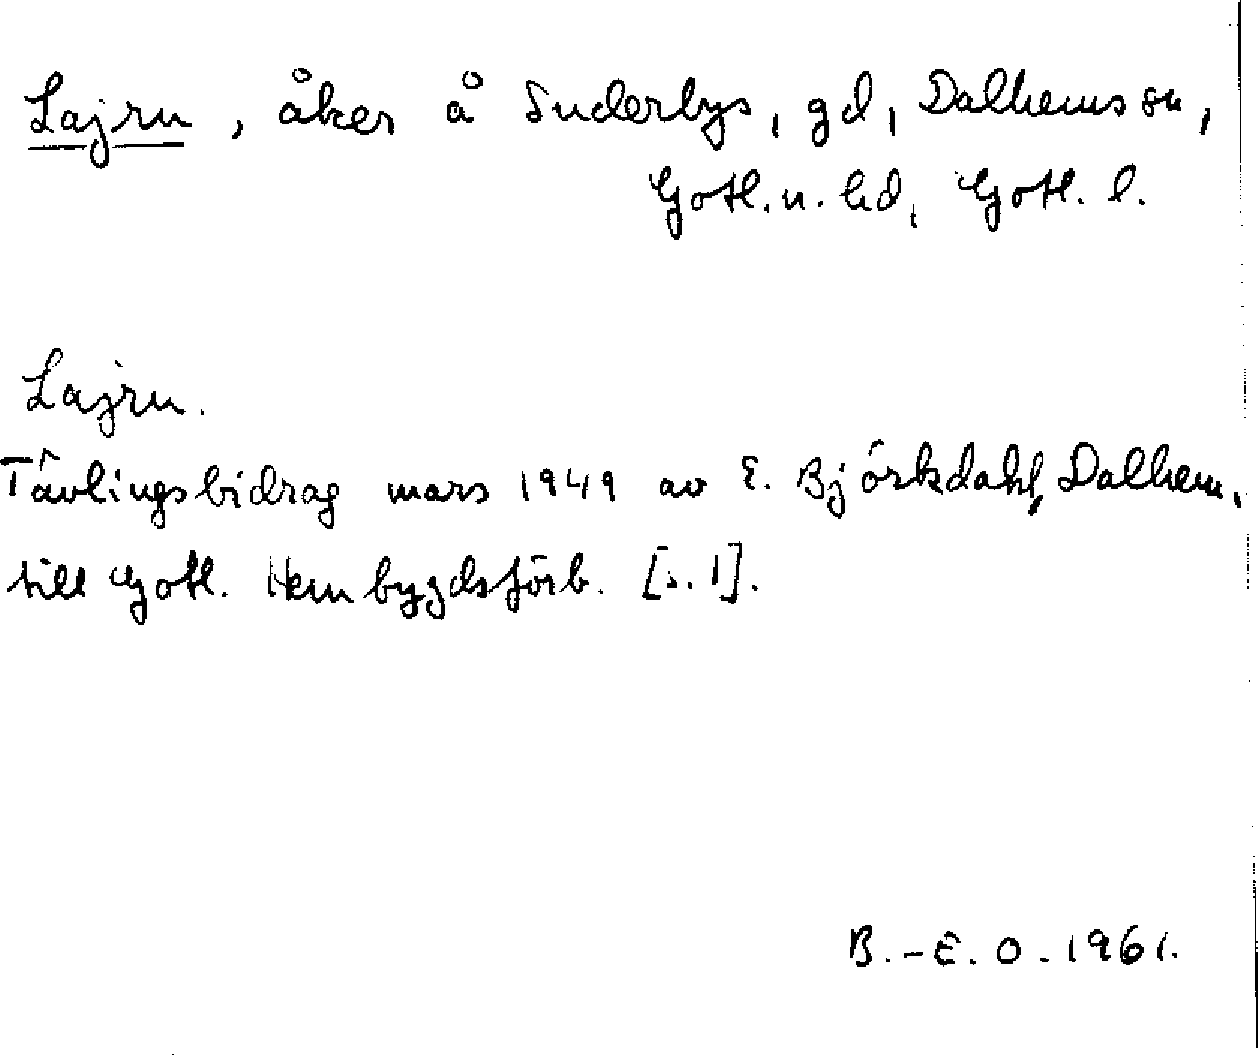 Lajrn, åker å Suderbys, gd, Dalhems sn,
Gotl. n. hd, Gotl. l.
Lajrn.
Tävlingsbidrag mars 1949 av E. Björkdahl, Dalhem,
till Gotl. Hembygdsförb. [s. 1].
B.-E. O. 1961.